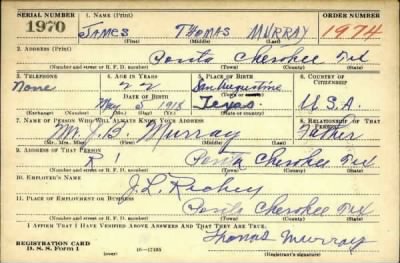 SERIAL NUMBER 1. NAME (Print) ORDER NUMBER
1970 JAMES THOMAS MURRAY 1974
(First) (Middle) (Last)
2. ADDRESS (Print)
Ponta Cherokee Tex
(Number and street or R. F. D. number) (Town) (County) (State)
3. TELEPHONE 4. AGE IN YEARS 5. PLACE OF BIRTH 6. COUNTRY OF CITIZENSHIP
None 22 San Augustine
DATE OF BIRTH (Town or county)
May 5 1918 Texas. U.S.A.
(Exchange) (Number) (Mo.) (Day) (Yr.) (State or country)
7. NAME OF PERSON WHO WILL ALWAYS KNOW YOUR ADDRESS 8. RELATIONSHIP OF THAT PERSON
Mr. J. B. Murray Father
(Mr., Mrs., Miss) (First) (Middle) (Last)
9. ADDRESS OF THAT PERSON
R 1 Ponta Cherokee Tex
(Number and street or R. F. D. number) (Town) (County) (State)
10. EMPLOYER'S NAME
J. L. Richey
11. PLACE OF EMPLOYMENT OR BUSINESS
Ponta Cherokee Tex
(Number and street or R. F. D. number) (Town) (County) (State)
I AFFIRM THAT I HAVE VERIFIED ABOVE ANSWERS AND THAT THEY ARE TRUE.
REGISTRATION CARD Thomas Murray
D. S. S. Form 1 (over) (Registrant's signature)